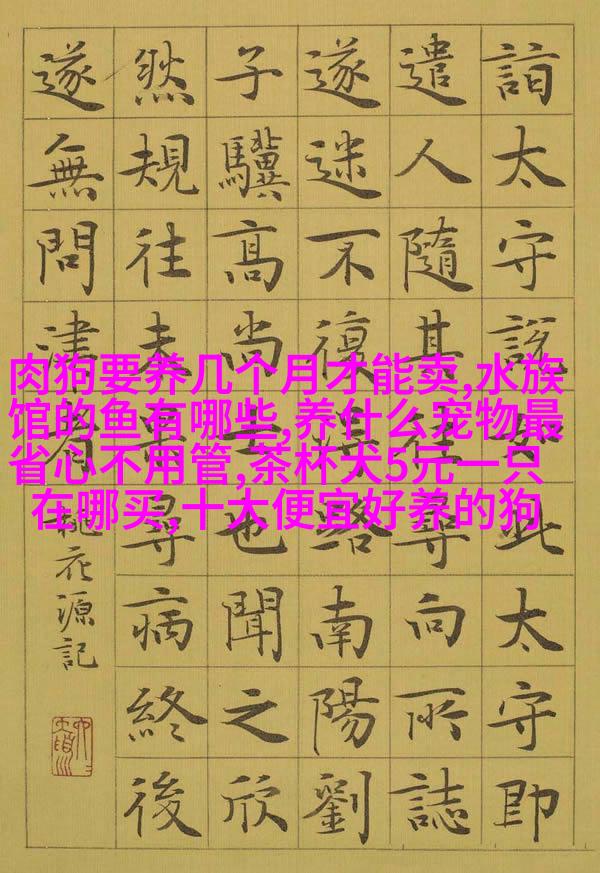 詣太守說如此太守即
遣人隨其往尋向所誌
遂迷不復得路南陽劉
子驥高尚士也聞之欣
然規往未果尋病終後
遂無問津者
桃花源記
肉狗要养几个月才能卖,水族
馆的鱼有哪些,养什么宠物最
省心不用管,茶杯犬5元一只
在哪买,十大便宜好养的狗